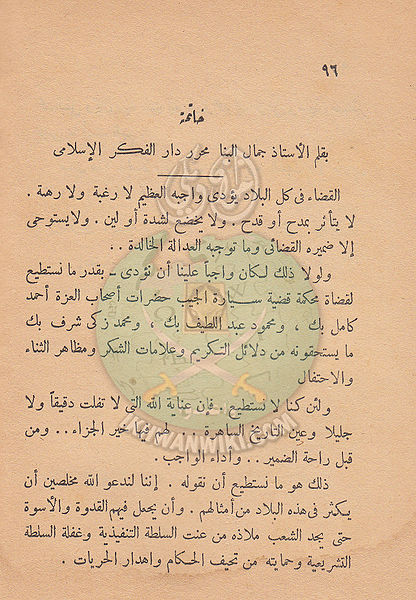 ٩٦
خاتمة
بقلم الأستاذ جمال البنا محرر دار الفكر الإسلامى
القضاء فى كل البلاد يؤدى واجبه العظيم لا رغبة ولا رهبة .
لا يتأثر بمدح أو قدح . ولا يخضع لشدة أو لين . ولا يستوحى
إلا ضميره القضائى وما توجبه العدالة الخالدة . .
ولولا ذلك لكان واجباً علينا أن نؤدى ـ بقدر ما نستطيع
لقضاة محكمة قضية سيارة الجيب حضرات أصحاب العزة أحمد
كامل بك ، ومحمود عبد اللطيف بك ، ومحمد زكى شرف بك
ما يستحقونه من دلائل التكريم وعلامات الشكر ومظاهر الثناء
والاحتفال
ولئن كنا لا نستطيع . فإن عناية الله التى لا تفلت دقيقاً ولا
جليلا وعين التاريخ الساهرة . . لطم فيها خير الجزاء . . ومن
قبل راحة الضمير . . وأداء الواجب .
ذلك هو ما نستطيع أن نقوله . إننا لندعو الله مخلصين أن
يكثر فى هذه البلاد من أمثالهم . وأن يجعل فيهم القدوة والأسوة
حتى يجد الشعب ملاذه من عنت السلطة التنفيذية وغفلة السلطة
التشريعية وحمايته من تحيف الحكام واهدار الحريات .
IKHWANWIKI.COM